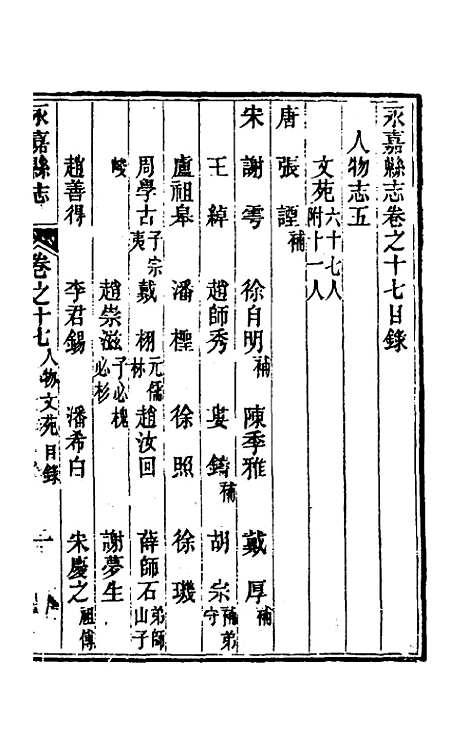 永嘉縣志卷之十七目錄
人物志五
文苑 六十七人 附十一人
唐 張諲 補
宋 謝雩 徐自明 補 陳季雅 戴厚 補
王綽 趙師秀 婁鑄 補 胡宗 補弟守
盧祖皋 潘檉 徐照 徐璣
周學古 子宗夷 戴栩 元儒林 趙汝回 薛師石 弟師山子
峻 趙崇滋 子必槐必杉 謝夢生
趙善得 李君錫 潘希白 朱慶之 祖傳
永嘉縣志 卷之十七 人物 文苑 目錄 一